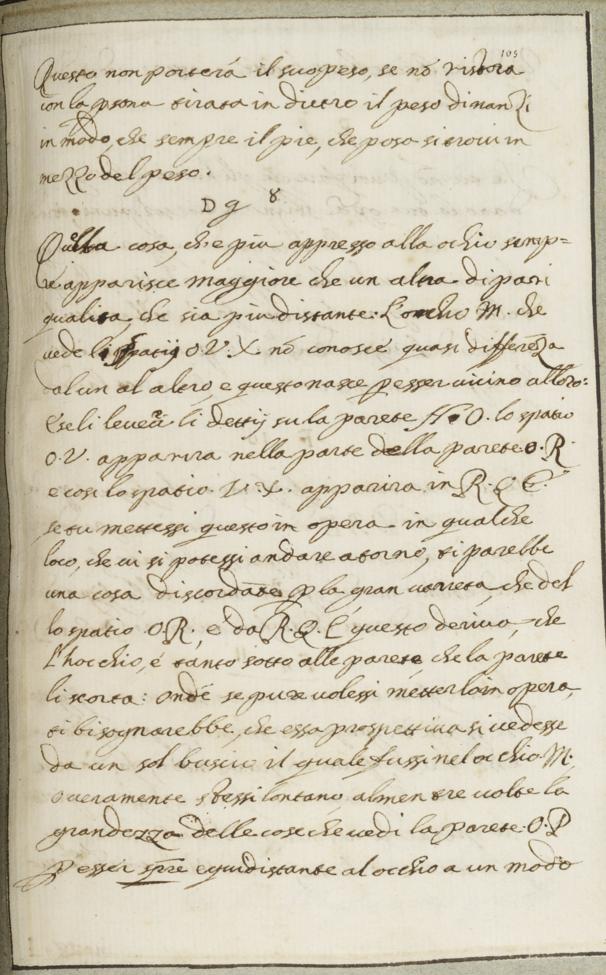 105
Questo non porterá il suo peso, se nó ristora
con la psona tirata in dietro il peso dinanzi
in modo, che sempre il pie, che posa si trovi in
mezzo del peso.
D g 8
Qulla cosa, che piu appresso alla ochio semp=
re apparisce maggiore che un altra di pari
qualita, che sia piu distante. L'occhio M. che
vede li spatij O V. X. nó conosce quasi differeza
dal un al altro e questo nasce p esser vicino alloro:
E se li leverai li dettij su la parete O. lo spatio
O. V. apparira nella parte della parete O. R.
e cosi lo spatio. V. X. apparira in R. Q. E
se tu mettessi questo in opera in qualche
loco, che vi si potessi andare atorno, ti parebbe
una cosa discordate p la gran varieta, che del
lo spatio O R, e da R. Q. E questo deriva, che
l'hocchio, é tanto sotto alle parete, che la parete
li scorta: onde se pure volessi metterla in opera,
ti bisognarebbe, che essa prospettiva si vedesse
da un sol buscio il quale fussi nel occhio M.
overamente stessi lontano almen tre volte la
grandezza delle cose che vedi la parete O. P
p esser spre equidistante al occhio a un modo